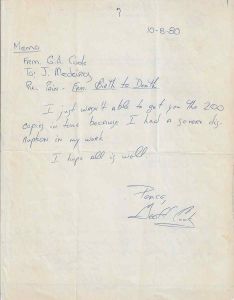 7
10-8-80
Memo
From G.d. Cook
To: J. Medeiros
Re: Pain - From Birth to Death
I just wasn't able to get you the 200
copies in time because I had a severe dis-
ruption in my work
I hope all is well.
Peace,
Geoff Cook